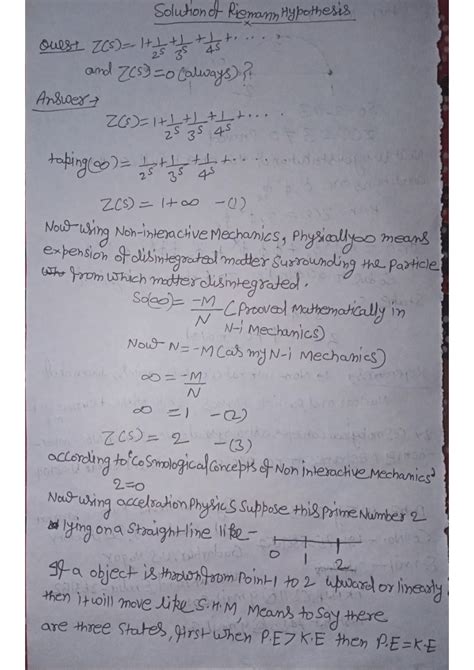 Solution of Riemann Hypothesis
Quest. Z(s) = 1+1/2^s+1/3^s+1/4^s+....
and Z(s) = 0 (always)?
Answer →
Z(s) = 1+1/2^s+1/3^s+1/4^s+....
taping(∞) = 1/2^s+1/3^s+1/4^s+....
Z(s) = 1+∞ -(1)
Now using Non-interactive Mechanics, Physically ∞ means
expension of disintegrated matter surrounding the particle
from which matter disintegrated.
So(∞) = -M/N (Prooved Mathematically in
N-i Mechanics)
Now N=-M (as my N-i Mechanics)
∞ = -M/N
∞ = 1 -(2)
Z(s) = 2 -(3)
according to "Cosmological Concepts of Non interactive Mechanics"
2=0
Now using accelration Physics suppose this Prime Number 2
lying on a straight line like-
0 1 2
If a object is thrown from Point 1 to 2 upward or linearly
then it will move like S.H.M, Means to Say there
are three states, first when P.E>K.E then P.E=K.E